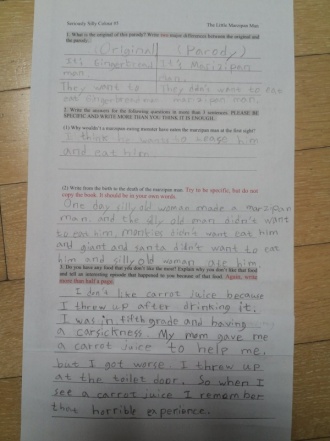 Seriously Silly Colour #3 The Little Marzipan Man
1. What is the original of this parody? Write two major difference between the original and
the parody.
(Original) (Parody)
It's Gingerbread It's Mazipan
man. man.
They want to They don't want to eat
eat marzipan man.
2. Write the answers for the following questions in more than 3 sentences. PLEASE BE
SPECIFIC AND WRITE MORE THAN YOU THINK IT IS ENOUGH.
(1) Why wouldn't a marzipan eating monster have eaten the marzipan man at the first sight?
I think he wants to him
and eat him
(2) Write from the birth to the death of the marzipan man. Try to be specific, but do not
copy the book. It should be in your own words.
One day silly old woman made a marzipan
man, and the silly old man didn't want
to eat him, didn't want eat him
and giant and santa didn't want to eat
him and silly old woman ate him
3. Do you have any food that you don't like the most? Explain why you don't like that food
and tell an interesting episode that happened to you because of that food. Again, write
more than half a page.
I don't like carrot juice because
I threw up after drinking it.
I was in fifth grade and having
a carsickness. My mom gave me
a carrot juice to help me,
but I got worse. I threw up
at the toilet door. So when I
see a carrot juice I remember
that horrible experience.